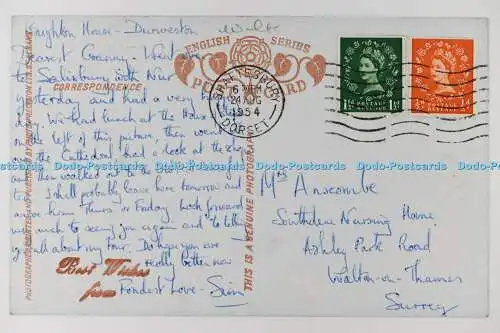 Knighton House - Durweston Wilts
Dearest Granny - Went
to Salisbury with
yesterday and had a very
We had lunch at the House
on the left of this picture then went
the Cathedral had a look at the shops
then walked
I shall probably leave here tomorrow and
home Thurs or Friday. Look forward
very much to seeing you again and to telling
you all about my tour. Do hope you are
really better now
Fondest Love - Sim
ENGLISH SERIES
POST CARD
CORRESPONDENCE
Best Wishes
from
THIS IS A GENUINE PHOTOGRAPH
SHAFTESBURY
6 PM
24 AUG
1954
DORSET
1½D POSTAGE REVENUE 1½D
½D POSTAGE REVENUE ½D
Mrs Anscombe.
Southdene Nursing Home
Ashley Park Road
Walton-on-Thames
Surrey
Dodo-Postcards Dodo-Postcards Dodo-Postcards Dodo-Postcards Dodo-Postcards